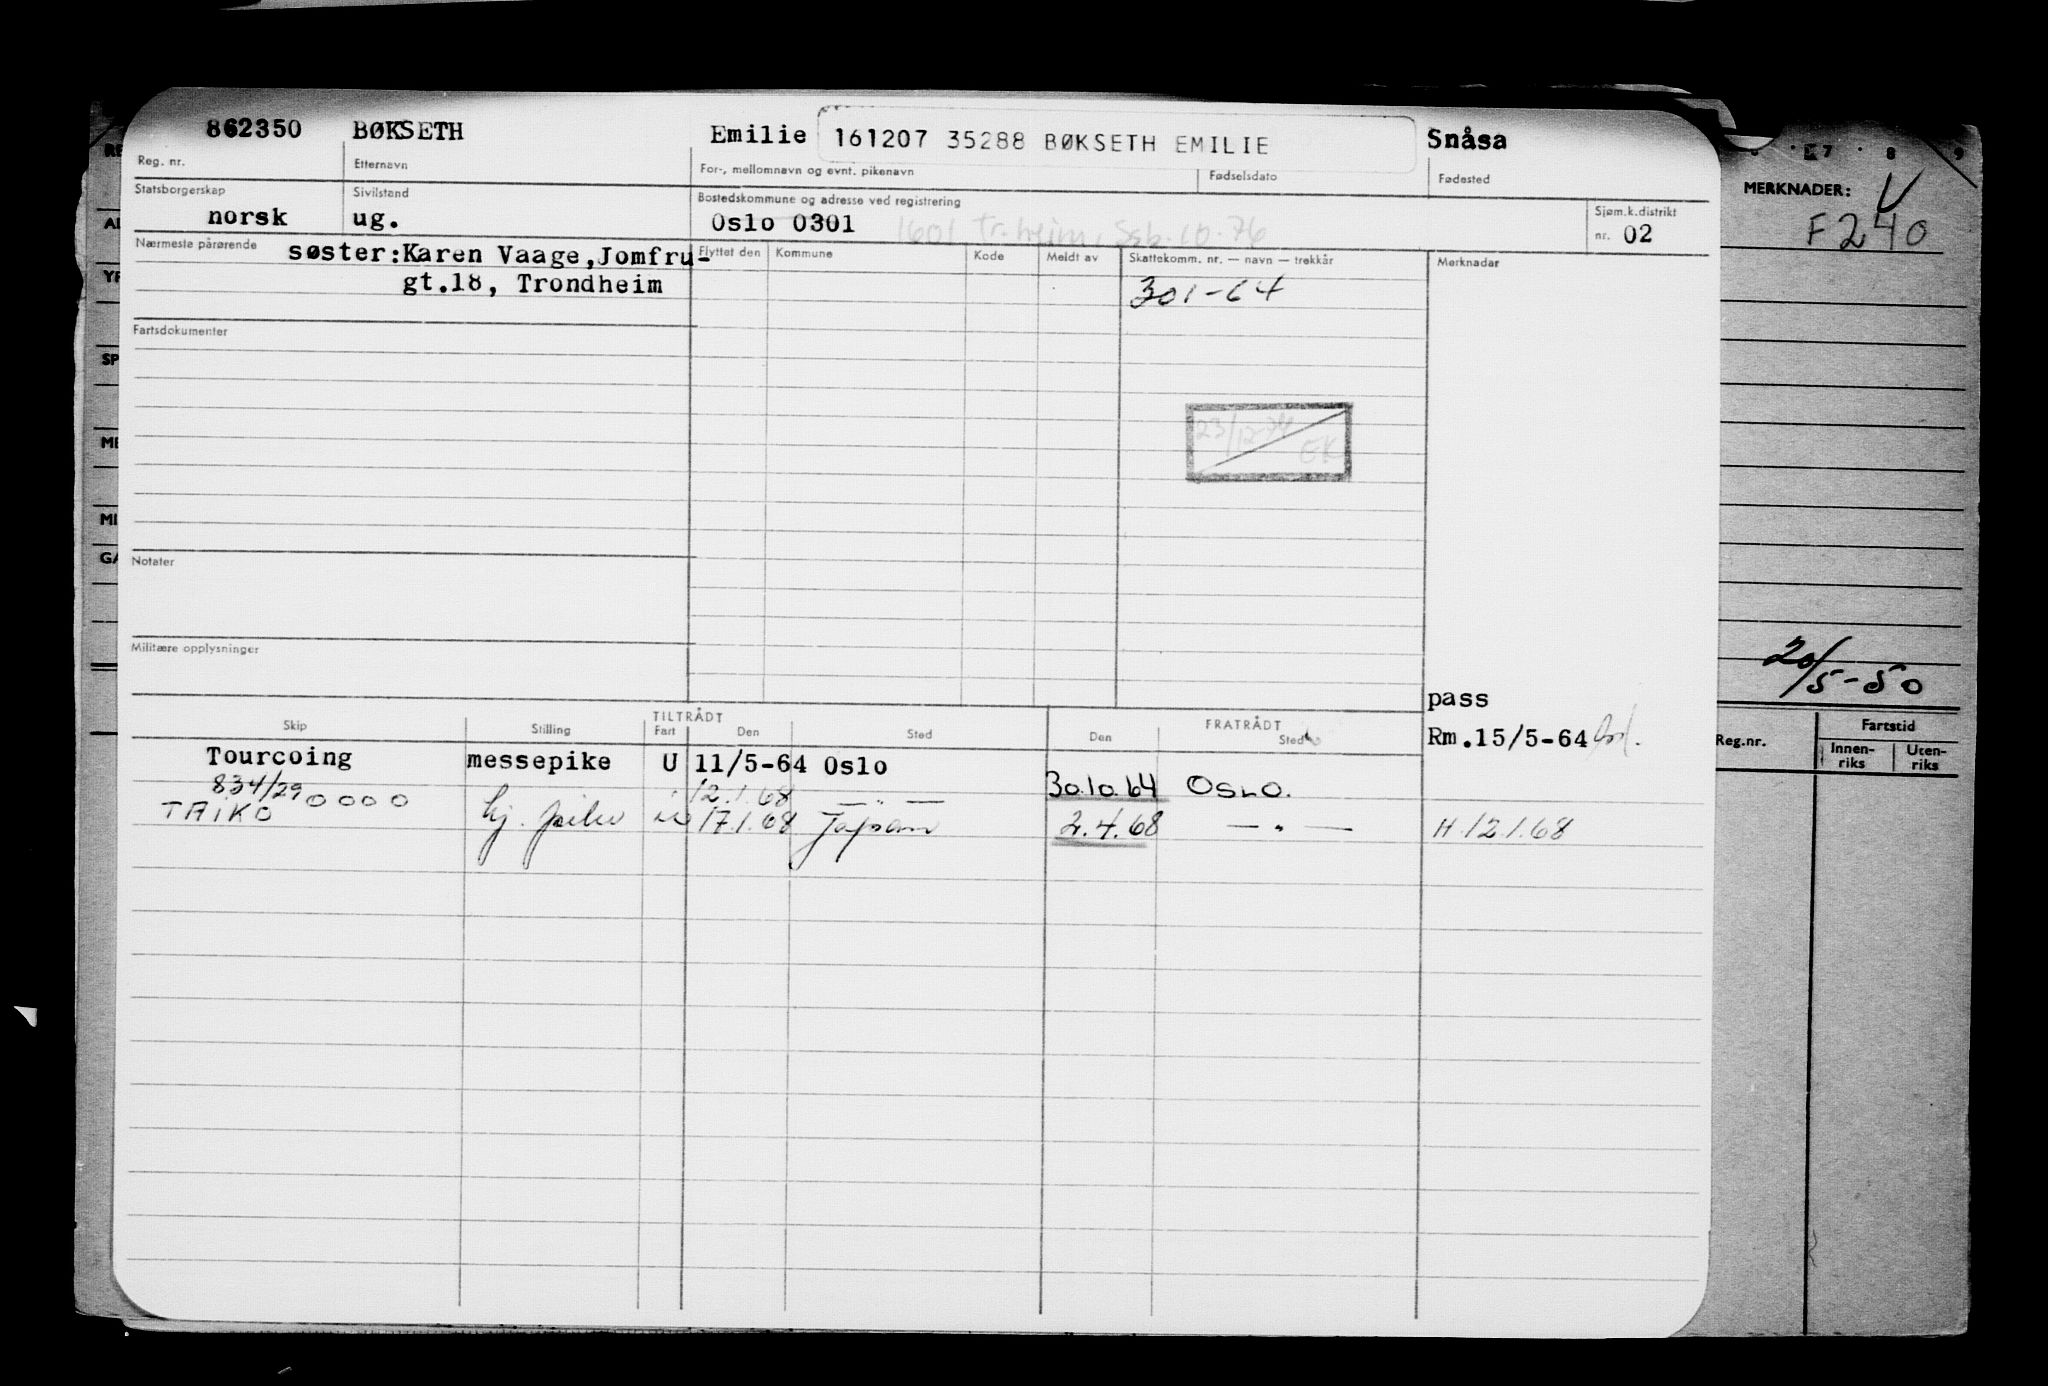 862350 BØKSETH Emilie 161207 35288 BØKSETH EMILIE Snåsa
Reg. nr. Etternavn For-, mellomnavn og evnt. pikenavn Fødselsdato Fødested
Statsborgerskap Sivilstand Bostedskommune og adresse ved registrering Sjøm.k.distrikt
norsk ug. Oslo 0301 1601 Tr.heim, Ssb. 10.76 nr. 02
Nærmeste pårørende søster:Karen Vaage,Jomfru-
gt.18, Trondheim
Flyttet den Kommune Kode Meldt av Skattekomm. nr. — navn — trekkår Merknader
301-64
Fartsdokumenter
23/12-74 EK
Notater
Militære opplysninger
pass
Rm.15/5-64
Skip Stilling TILTRÅDT FRATRÅDT
Fart Den Sted Den Sted
Tourcoing messepike U 11/5-64 Oslo
834/29 0000 12.1.68 — " — 30.10.64 OSLO.
TAIKO 17.1.68 Japan 2.4.68 — " — H.12.1.68
7 8 9
MERKNADER: V
F240
20/5-50
Fartstid
Reg.nr. Innen-
riks Uten-
riks
RE
AD
YR
SP
ME
MI
GA